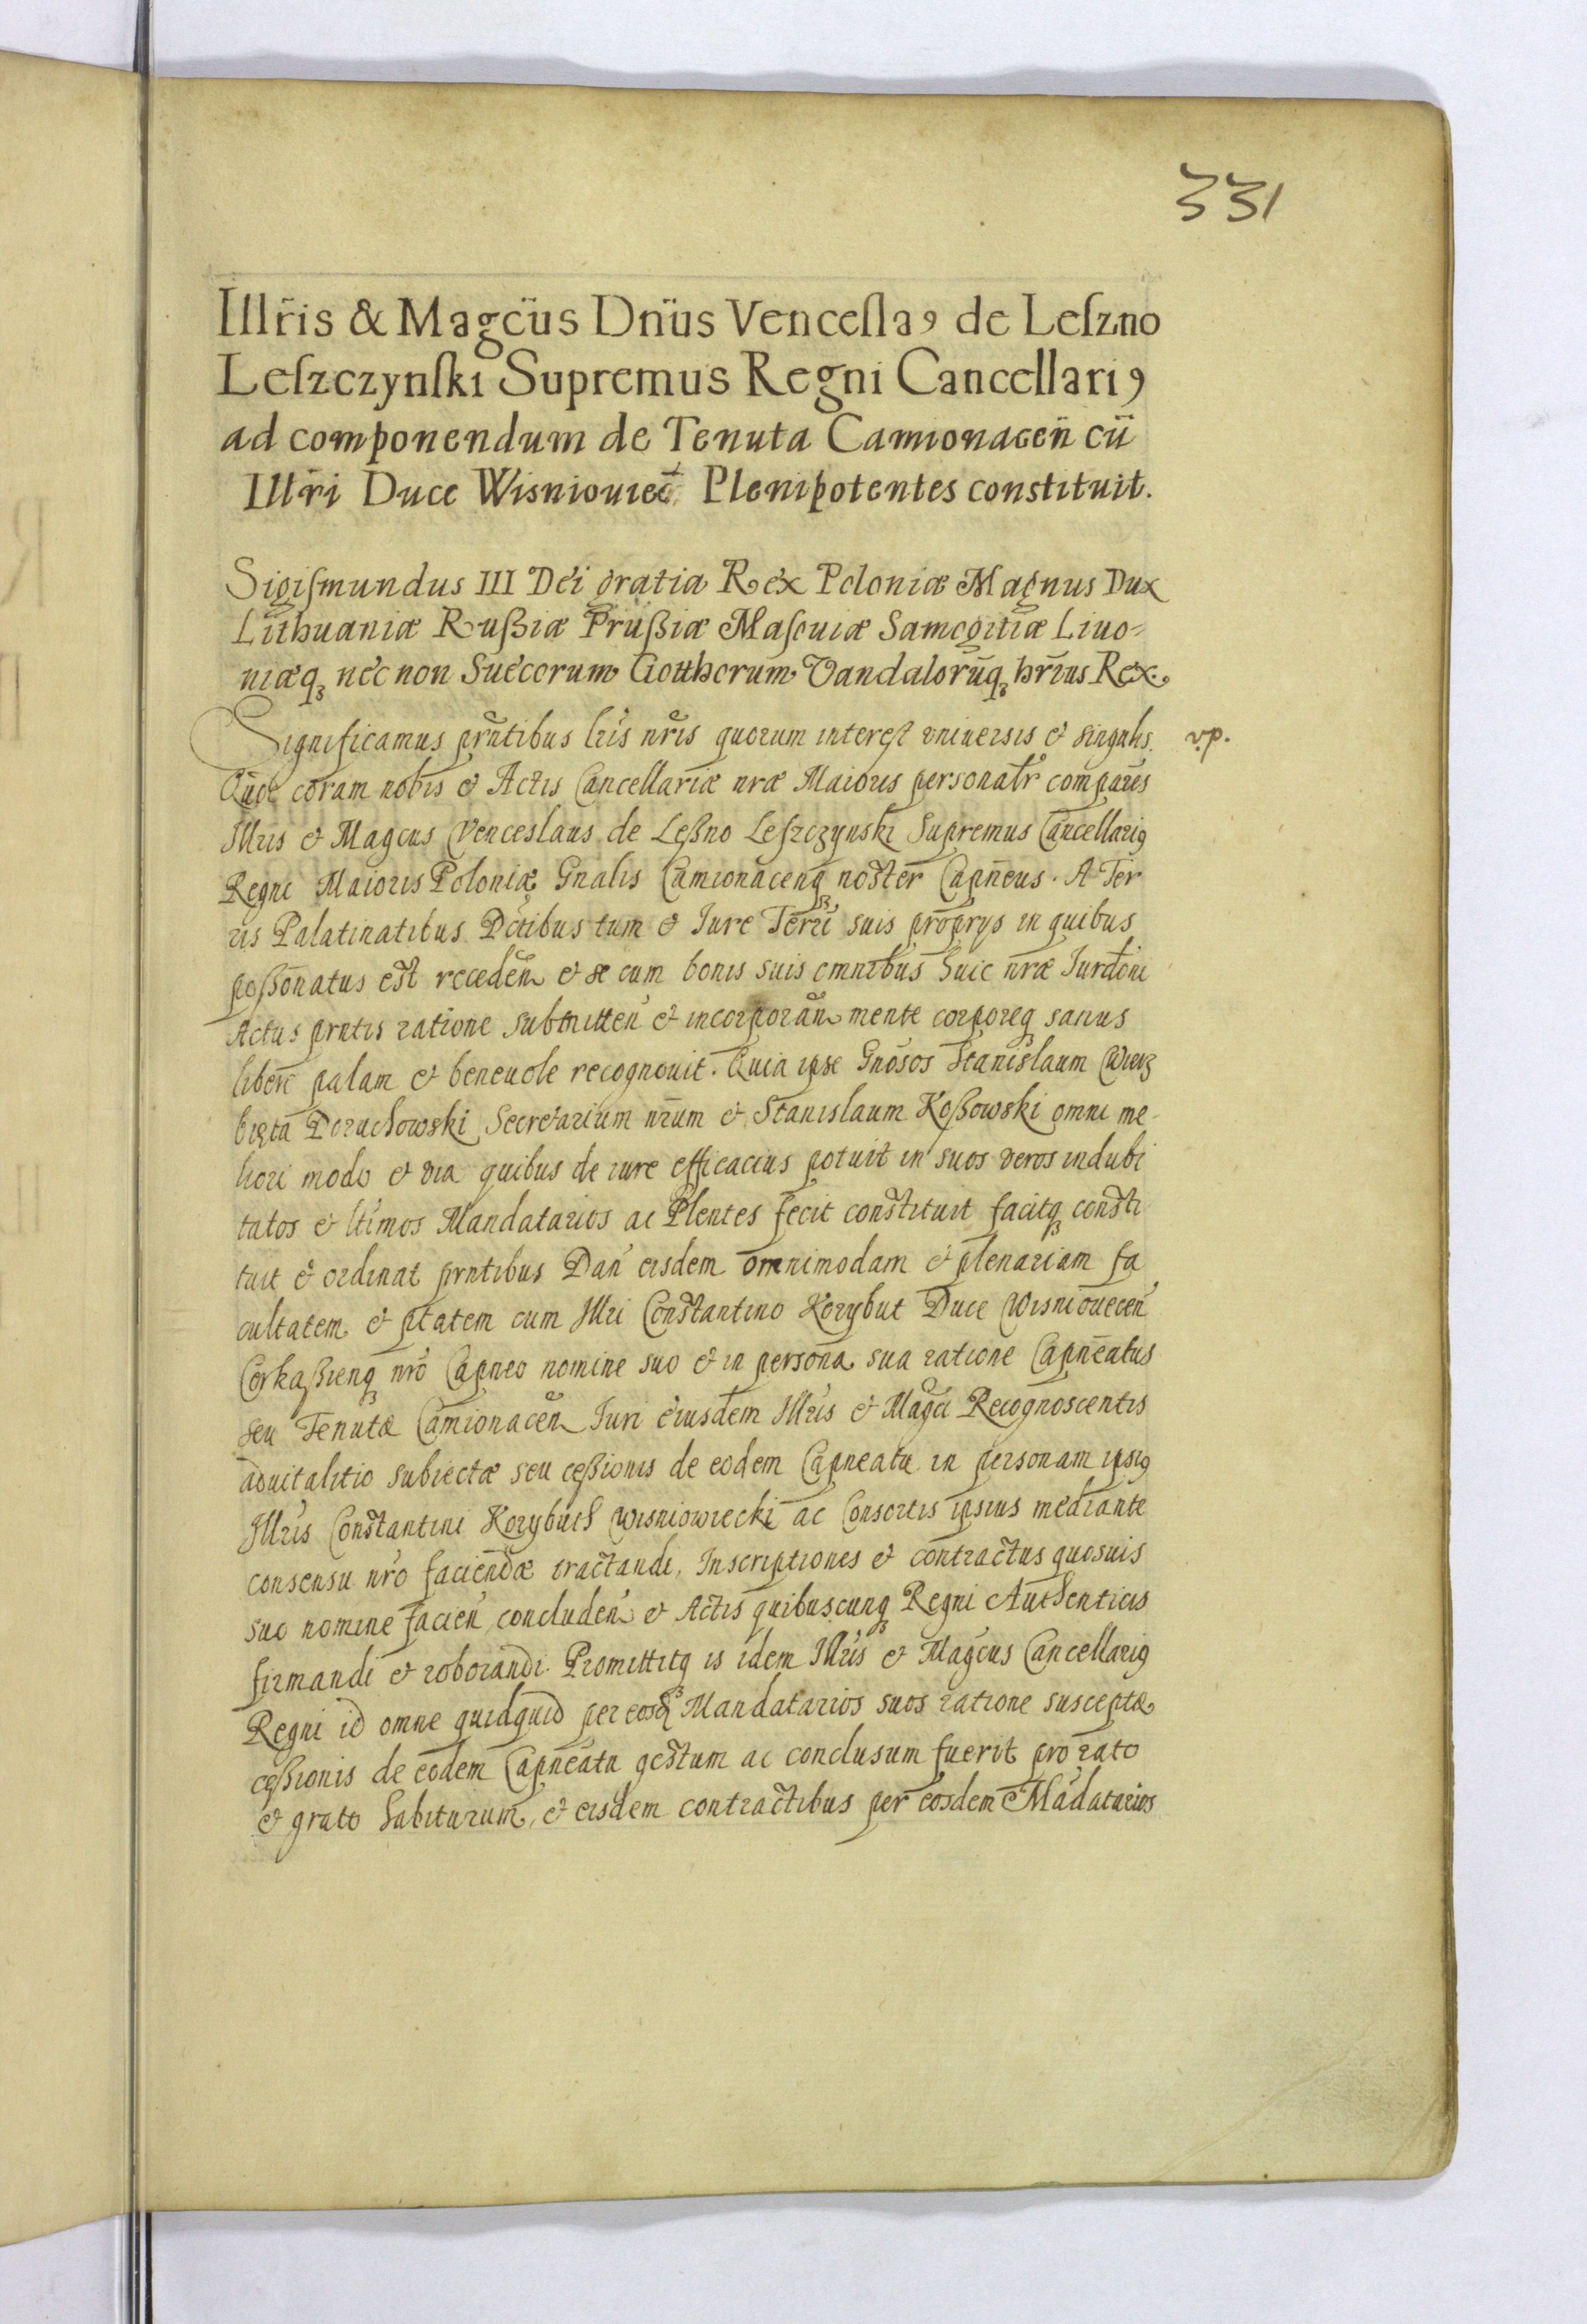 331
Illr̃is & Magc̃us Dñus Venceſlaꝰ de Leſzno
Leſzczynſki Supremus Regni Cancellariꝰ
ad componendum de Tenuta Camionaceñ cũ
Illr̃i Duce Wisniouiec̃ Plenipotentes constituit.
Sigiſmundus III Dei gratia Rex Poloniæ Magnus Dux
Lithuaniæ Rußiæ Prußiæ Maſouiæ Samogitiæ Liuo-
niæq₃ nec non Suecorum Gotthorum Vandalorũq₃ hr̃ius Rex.
Significamus prñtibus lr̃is nr̃is quorum interest vniuersis et singulis. v.p.
Quod coram nobis et Actis Cancellariæ nr̃æ Maioris personalr̃ comparẽs
Illr̃is et Magcus Venceslaus de Leßno Leſzczynski Supremus Cancellariꝰ
Regni Maioris Poloniæ Gñalis Camionacenq₃ noster Capñeus. A Ter
ris Palatinatibus Dctibus tum et Iure Terri suis proprys in quibus
poßonatus est recedeñ et se cum bonis suis omnibus huic nr̃æ Iurdoni
Actus prñtis ratione submitteñ et incorporañ mente corporeq₃ sanus
libere palam et beneuole recognouit. Quia ipse Gnosos Stanislaum Wierz
bięta Doruchowski Secretarium nr̃um et Stanislaum Koßowski omni me
liori modo et via quibus de iure efficacius potuit in suos veros indubi
tatos et ltimos Mandatarios ac Plentes fecit constituit facitq₃ consti
tuit et ordinat prñtibus Dañ eisdem omnimodam et plenariam fa
cultatem et ptatem cum Illri Constantino Korybut Duce Wisniouecen
Cerkaßienq₃ nr̃o Capneo nomine suo et in persona sua ratione Capñeatus
seu Tenutæ Camionaceñ Iuri eiusdem Illr̃is et Magci Recognoscentis
aduitalitio subiectæ seu ceßionis de eodem Capneatu in personam ipsiꝰ
Illr̃is Constantini Korybuth Wisniowiecki ac Consortis ipsius mediante
consensu nr̃o faciendæ tractandi, Inscriptiones et contractus quosuis
suo nomine facieñ concludeñ et Actis quibuscunq₃ Regni Authenticis
firmandi et roborandi. Promittitq₃ is idem Illr̃is et Magcus Cancellariꝰ
Regni id omne quidquid per eosd Mandatarios suos ratione susceptæ
ceßionis de eodem Capneatu gestum ac conclusum fuerit pro rato
et grato habiturum, et eisdem contractibus per eosdem Mãdatarios